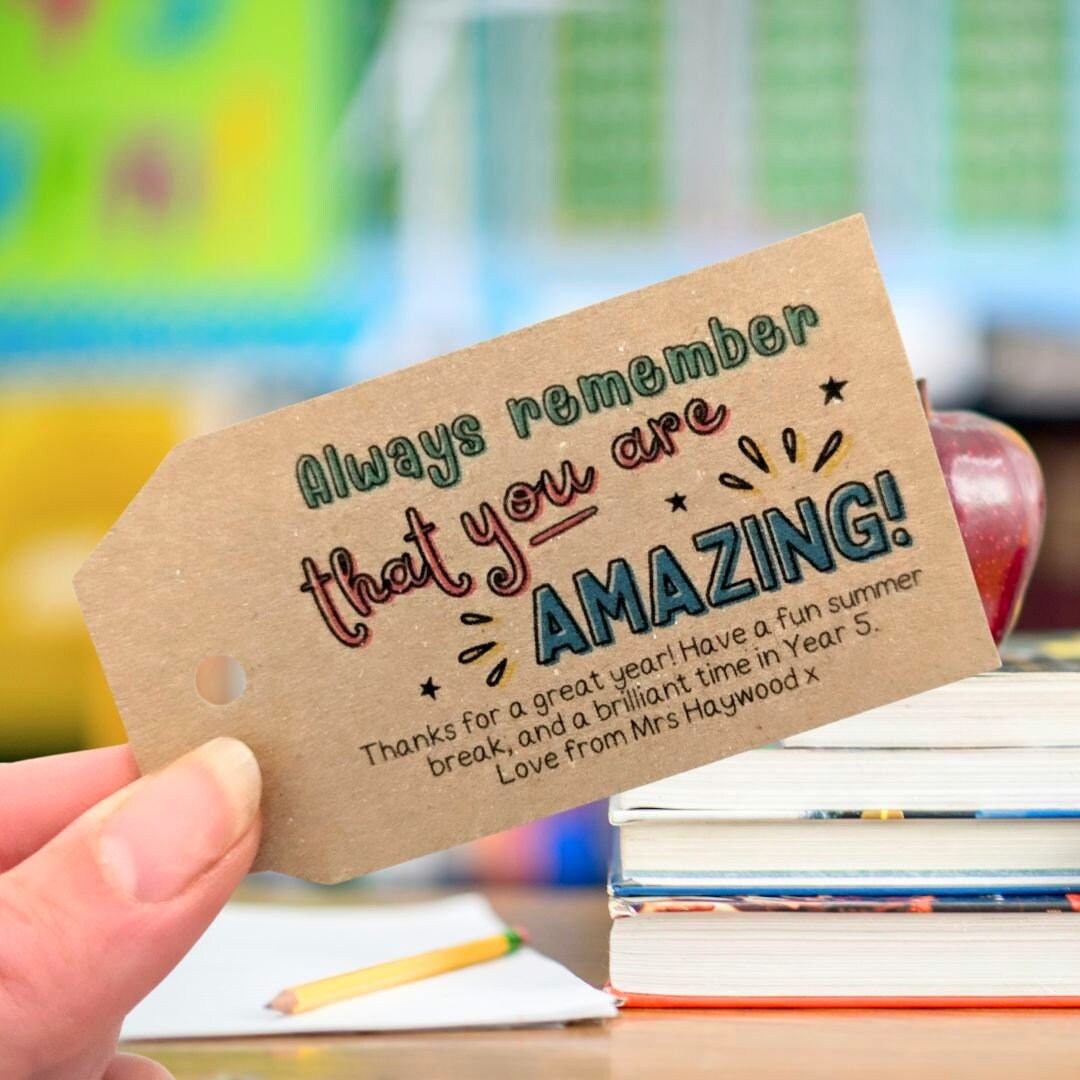 Always remember
that you are
AMAZING!
Thanks for a great year! Have a fun summer
break, and a brilliant time in Year 5.
Love from Mrs Haywood x